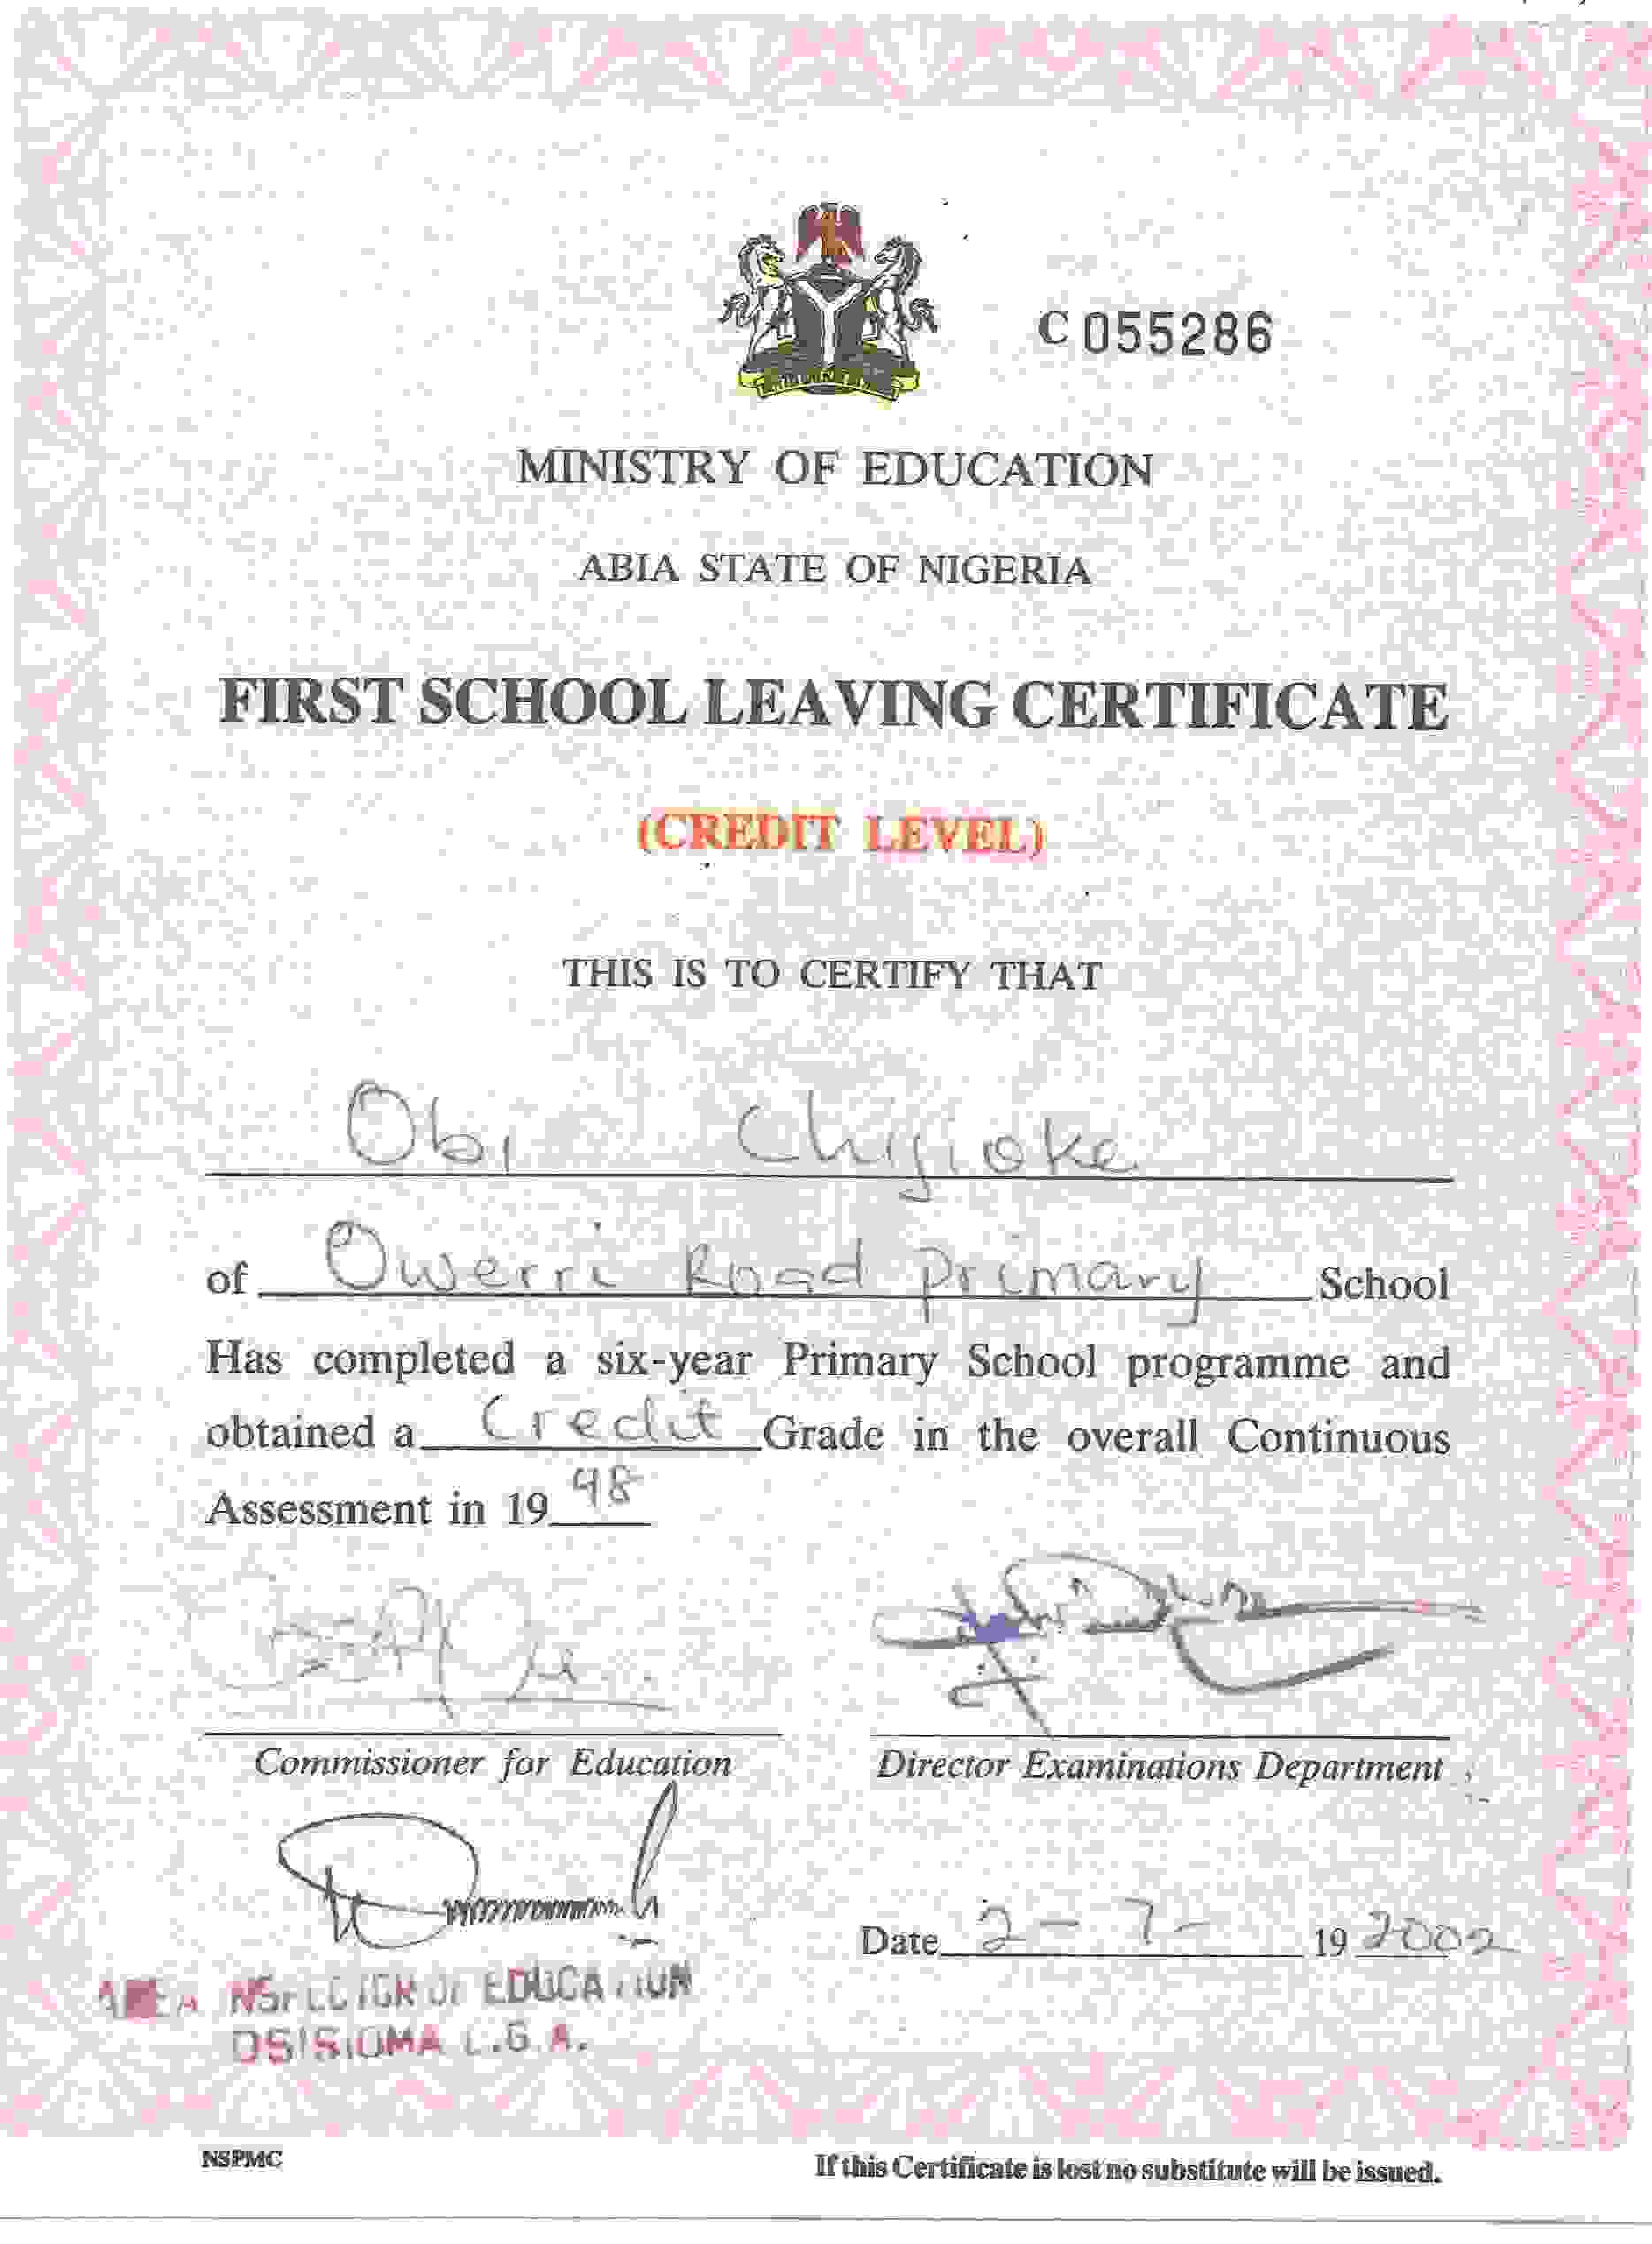 C 055286
MINISTRY OF EDUCATION
ABIA STATE OF NIGERIA
FIRST SCHOOL LEAVING CERTIFICATE
(CREDIT LEVEL)
THIS IS TO CERTIFY THAT
Obi Chijioke
of Owerri Road primary School
Has completed a six-year Primary School programme and
obtained a Credit Grade in the overall Continuous
Assessment in 19 98
Commissioner for Education Director Examinations Department
Date 2-7- 19 2002
AREA INSPECTOR OF EDUCATION
OSISIOMA L.G.A.
NSPMC If this Certificate is lost no substitute will be issued.